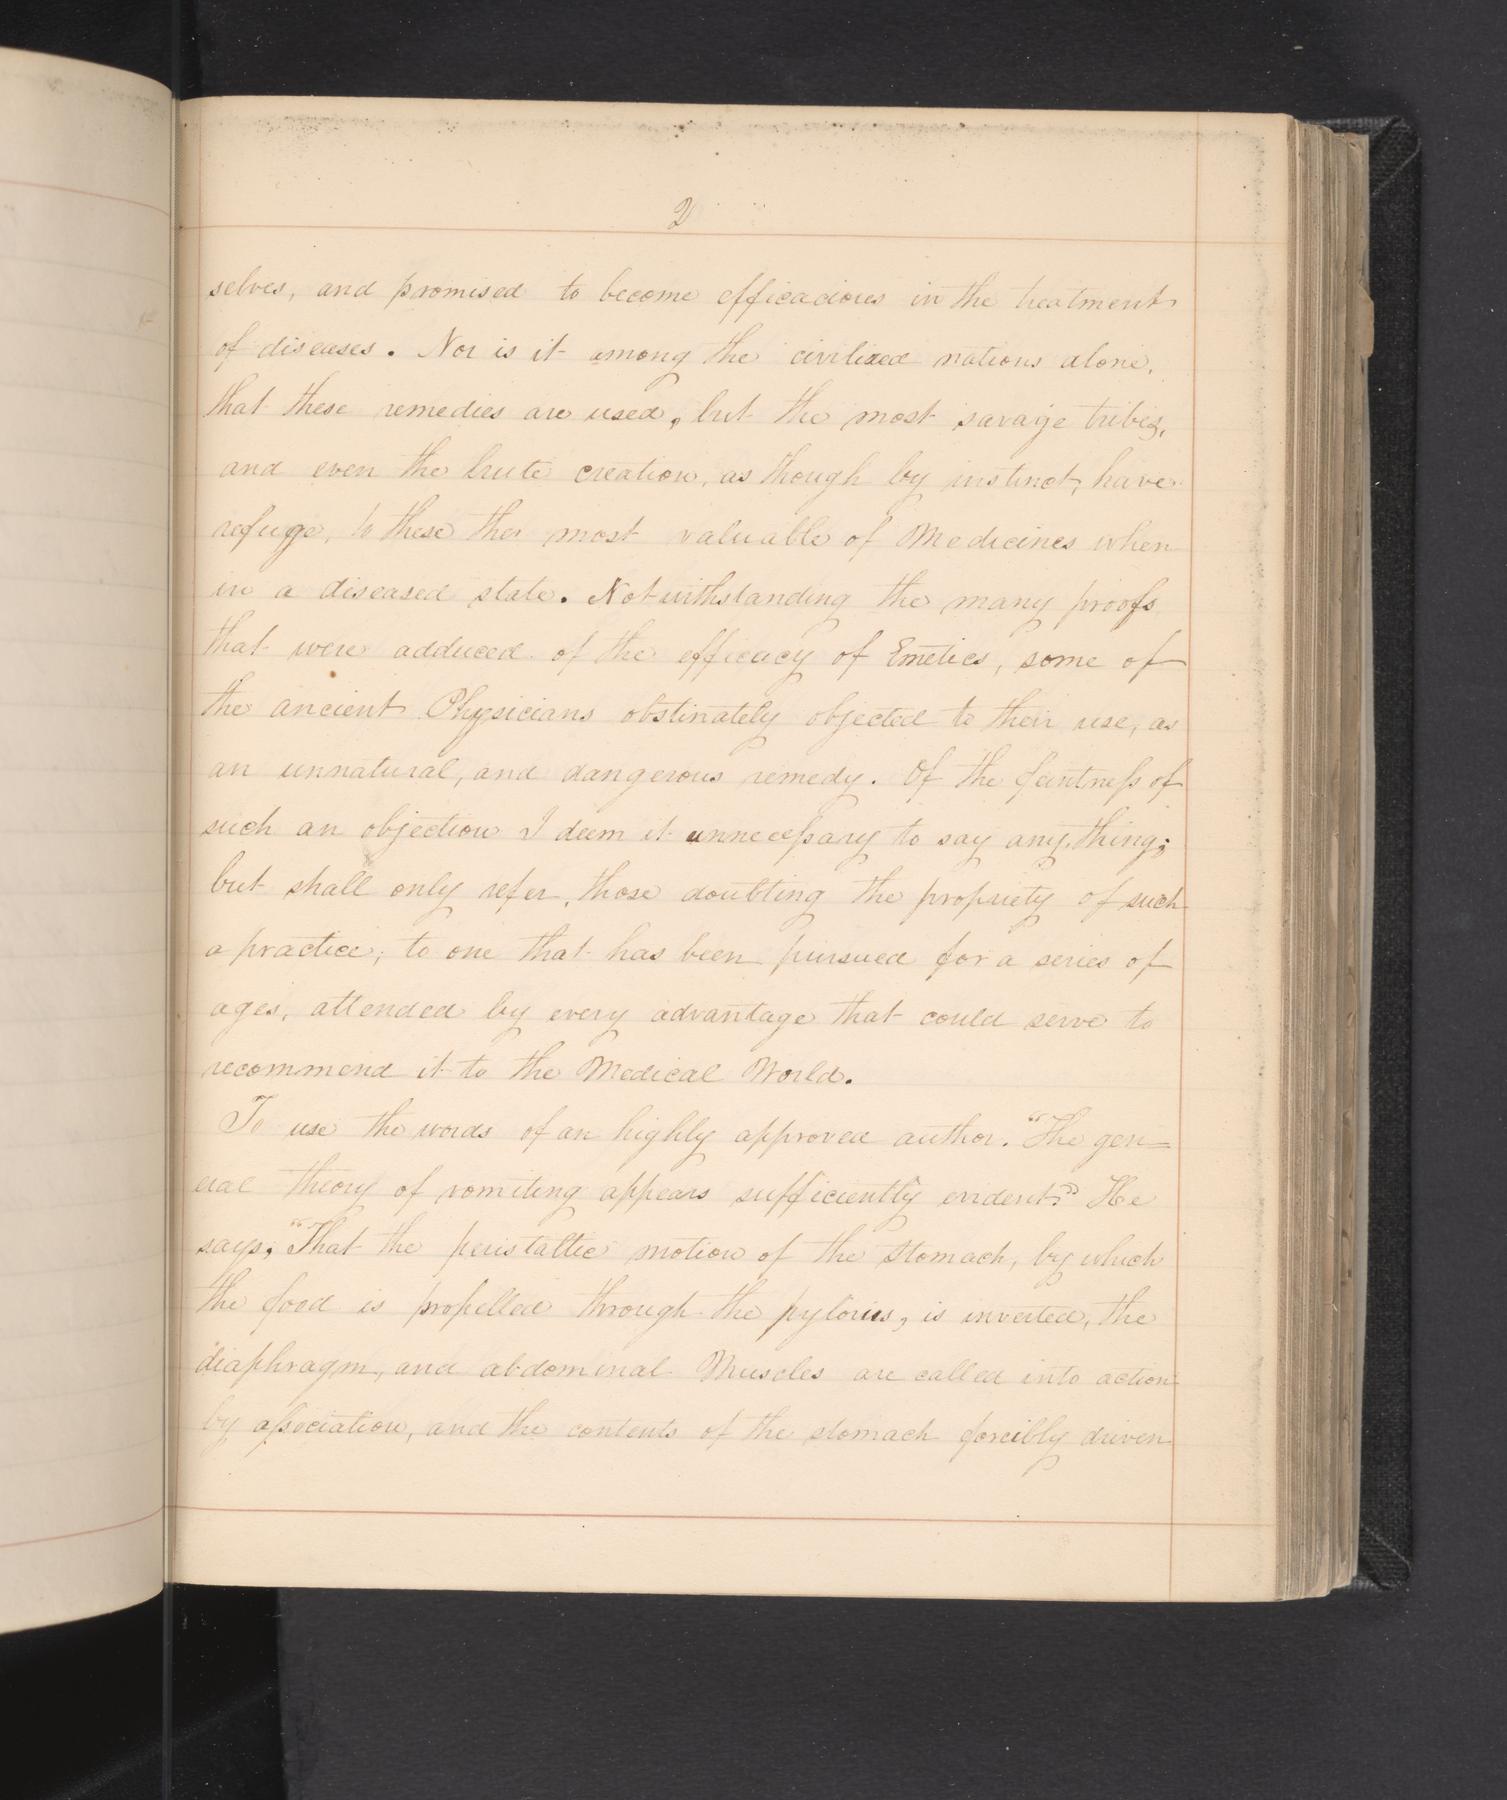 2
selves, and promised to become efficacious in the treatment
of diseases. Nor is it among the civilized nations alone,
that these remedies are used, but the most savage tribes,
and even the brute creation, as though by instinct, have
refuge, to these the most valuable of Medicines when
in a diseased state. Notwithstanding the many proofs
that were adduced of the efficacy of Emetics, some of
the ancient Physicians obstinately objected to their use, as
an unnatural, and dangerous remedy. Of the faintness of
such an objection I deem it unnecessary to say any thing;
but shall only refer, those doubting the propriety of such
a practice; to one that has been pursued for a series of
ages, attended by every advantage that could serve to
recommend it to the Medical World.
To use the words of an highly approved author. "The gen=
eral theory of vomiting appears sufficiently evident." He
says, "That the peristaltic motion of the Stomach, by which
the food is propelled through the pylorus, is inverted, the
diaphragm, and abdominal Muscles are called into action
by association, and the contents of the stomach forcibly driven